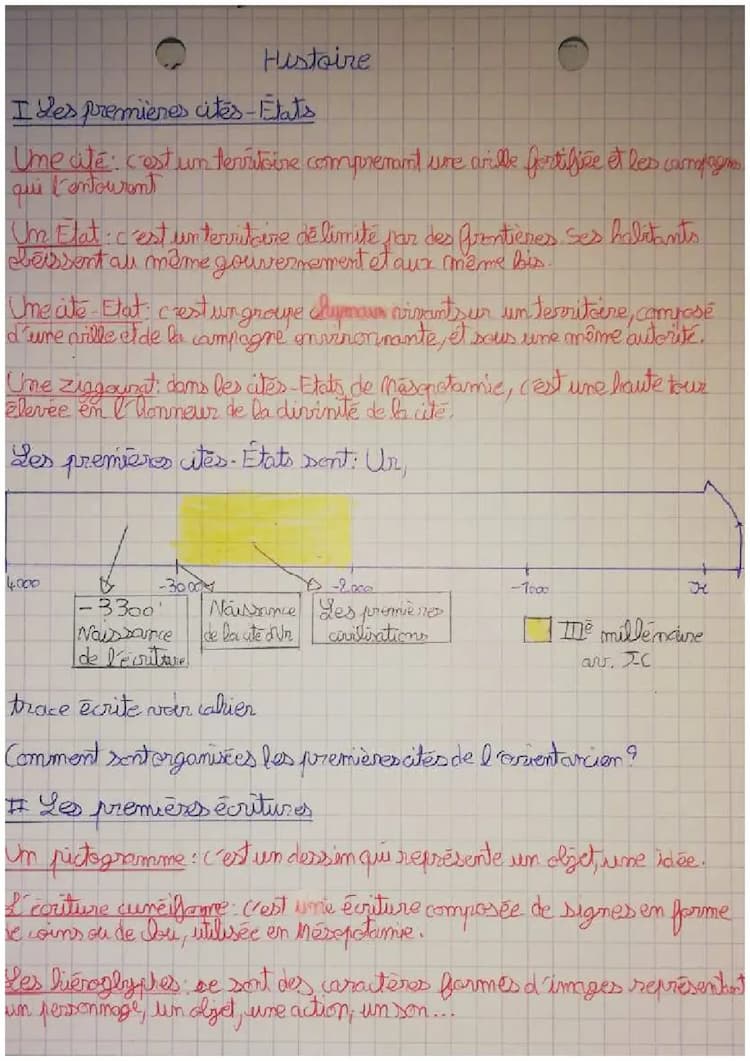 Histoire
I Les premières cités-États
Une cité: c'est un territoire comprenant une ville fortifiée et les campagnes
qui l'entourant
Un État: c'est un territoire délimité par des frontières. Ses habitants
obéissent au même gouvernement et aux même lois.
Une cité-Etat: c'est un groupe humain vivant sur un territoire, composé
d'une ville et de la campagne environnante, et sous une même autorité.
Une ziggourat: dans les cités-Etats de Mésopotamie, c'est une haute tour
élevée en l'honneur de la divinité de la cité.
Les premières cités-États sont: Ur,
4000 -3000 -2000 -1000 JC
-3300
Naissance
de l'écriture
Naissance
de la cité d'Ur
Les premières
civilisations
IIIe millénaire
av. JC
trace écrite voir cahier
Comment sont organisées les premières cités de l'orient ancien ?
II Les premières écritures
Un pictogramme: c'est un dessin qui représente un objet, une idée.
L'écriture cunéiforme: c'est une écriture composée de signes en forme
de coins ou de clou, utilisée en Mésopotamie.
Les hiéroglyphes: ce sont des caractères formés d'images représentant
un personnage, un objet, une action, un son...